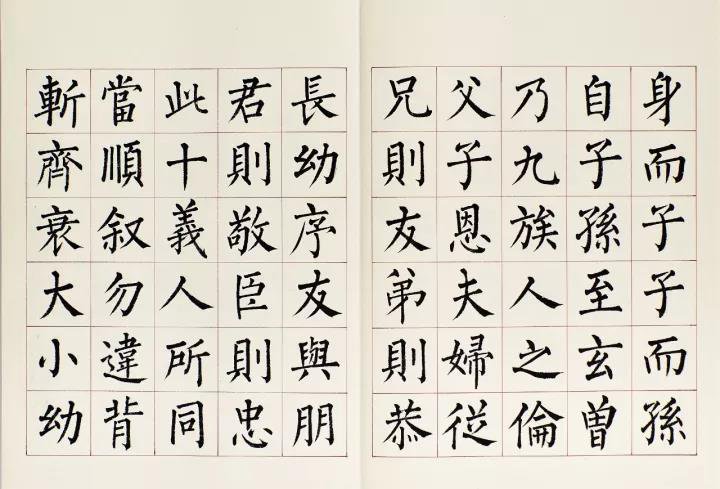 身而子子而孫
自子孫至玄曽
乃九族人之倫
父子恩夫婦從
兄則友弟則恭
長幼序友與朋
君則敬臣則忠
此十義人所同
當順叙勿違背
斬齊衰大小幼